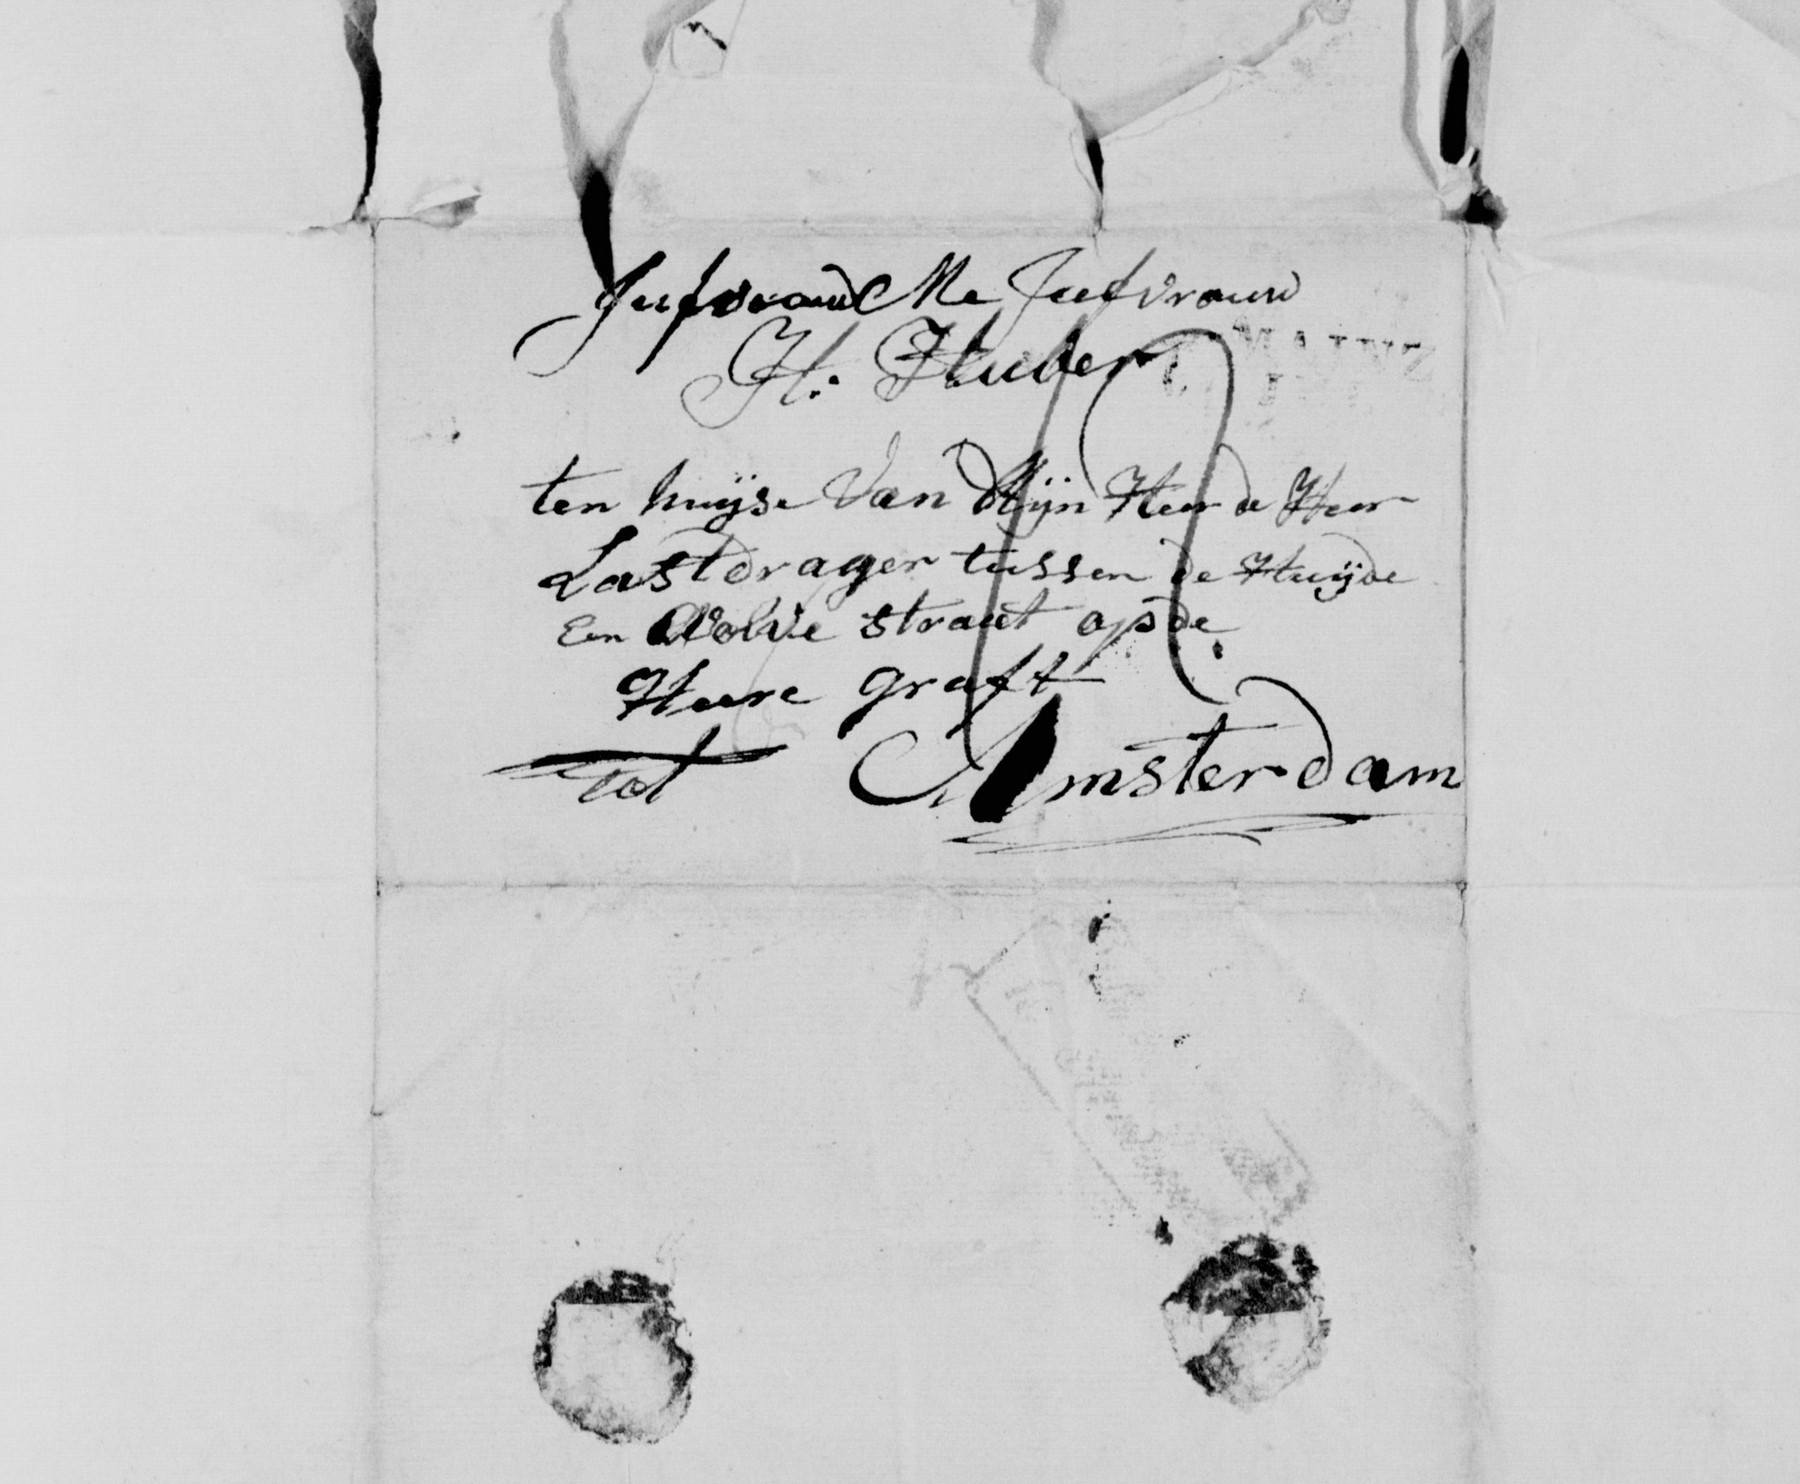 Jufvrouw Me Jufvrouw
H: Huber
ten huijse Van Mijn Heer de Heer
Lastdrager tussen de Huijde
Een Wolve straat op de
Heere graft
Tot Amsterdam